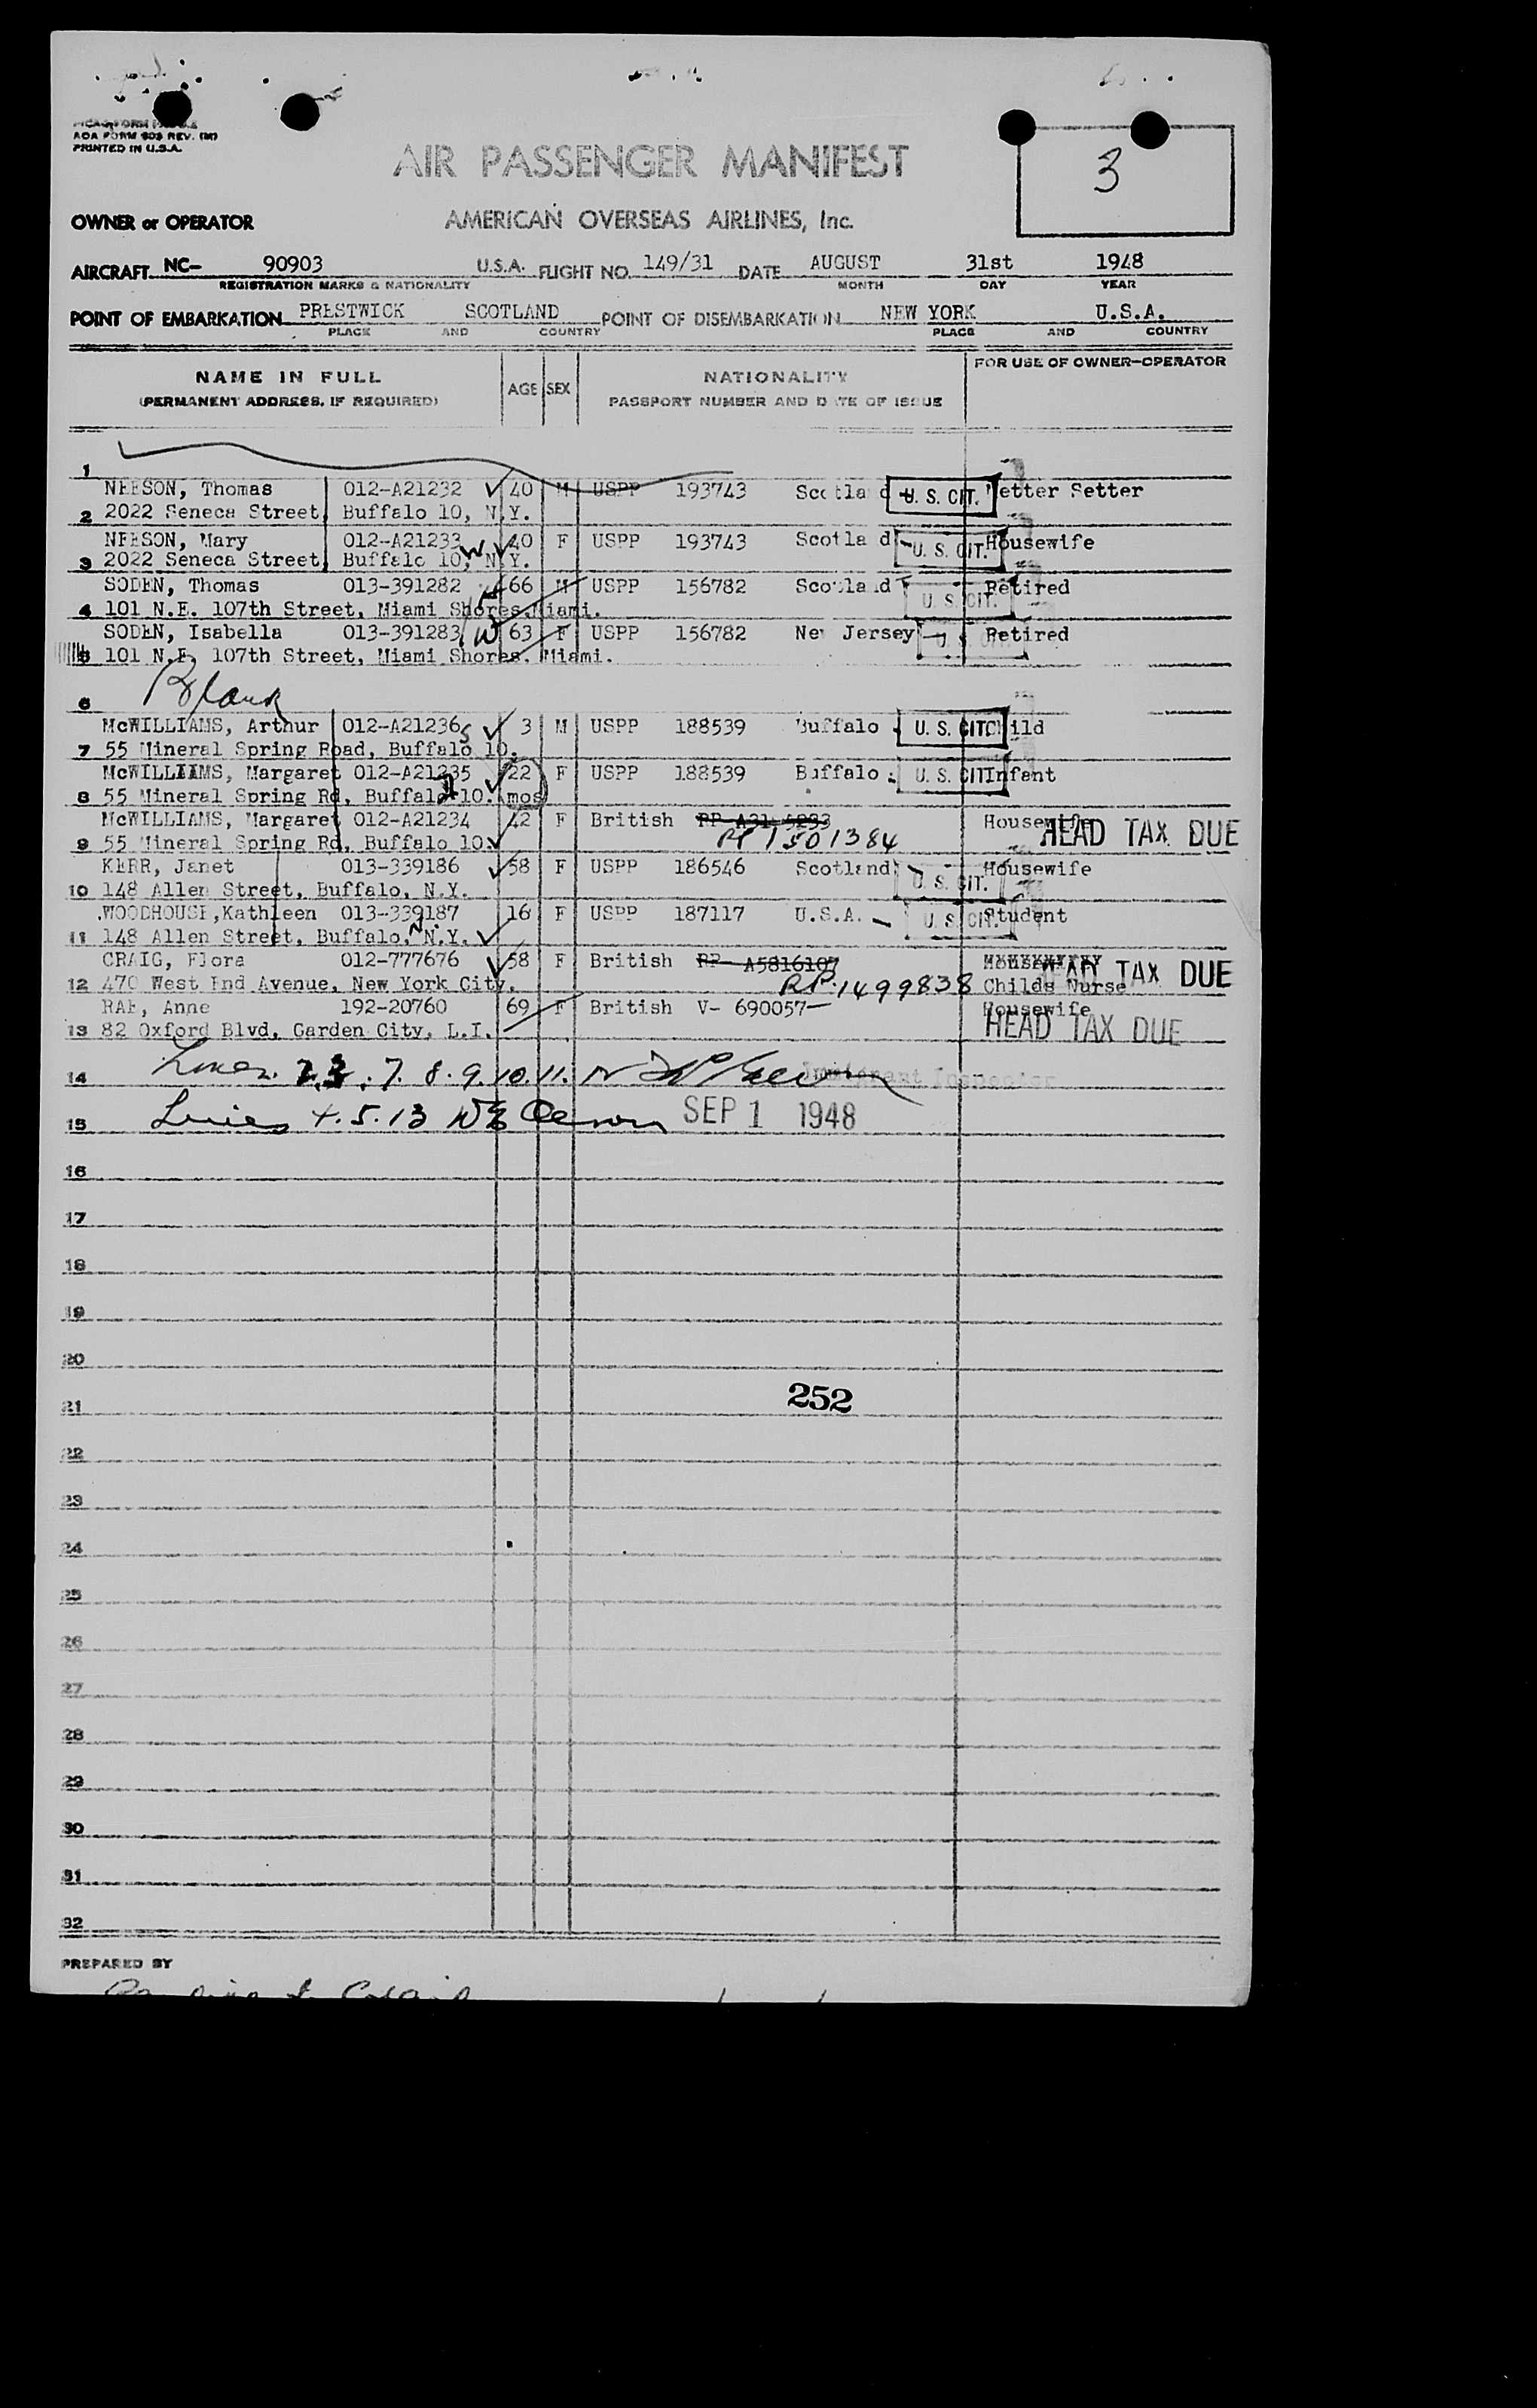 AOA FORM 803 REV. (M)
PRINTED IN U.S.A.
3
AIR PASSENGER MANIFEST
OWNER or OPERATOR AMERICAN OVERSEAS AIRLINES, Inc.
AIRCRAFT NC- 90903 U.S.A. FLIGHT NO. 149/31 DATE AUGUST 31st 1948
REGISTRATION MARKS & NATIONALITY MONTH DAY YEAR
POINT OF EMBARKATION PRESTWICK SCOTLAND POINT OF DISEMBARKATION NEW YORK U.S.A.
PLACE AND COUNTRY PLACE AND COUNTRY
NAME IN FULL AGE SEX NATIONALITY FOR USE OF OWNER-OPERATOR
(PERMANENT ADDRESS, IF REQUIRED) PASSPORT NUMBER AND DATE OF ISSUE
1
NEESON, Thomas 012-A21232 40 M USPP 193743 Scotland U. S. CIT. Letter Setter
2 2022 Seneca Street, Buffalo 10, N.Y.
NEESON, Mary 012-A21233 40 F USPP 193743 Scotland U. S. CIT. Housewife
3 2022 Seneca Street, Buffalo 10, N.Y.
SODEN, Thomas 013-391282 66 M USPP 156782 Scotland U. S. CIT. Retired
4 101 N.E. 107th Street, Miami Shores, Miami.
SODEN, Isabella 013-391283 W 63 F USPP 156782 New Jersey Retired
5 101 N.E. 107th Street, Miami Shores, Miami.
6 Blank
McWILLIAMS, Arthur 012-A21236 3 M USPP 188539 Buffalo U. S. CIT. Child
7 55 Mineral Spring Road, Buffalo 10.
McWILLIAMS, Margaret 012-A21235 22 F USPP 188539 Buffalo U. S. CIT. Infant
8 55 Mineral Spring Rd, Buffalo 10. mos
McWILLIAMS, Margaret 012-A21234 42 F British Housewife HEAD TAX DUE
9 55 Mineral Spring Rd, Buffalo 10. RP 1501384
KERR, Janet 013-339186 58 F USPP 186546 Scotland U. S. CIT. Housewife
10 148 Allen Street, Buffalo, N.Y.
WOODHOUSE, Kathleen 013-339187 16 F USPP 187117 U.S.A. U. S. CIT. Student
11 148 Allen Street, Buffalo, N.Y.
CRAIG, Flora 012-777676 58 F British RP- A5816107 HEAD TAX DUE
12 470 West End Avenue, New York City. RP. 1499838 Childs Nurse
RAE, Anne 192-20760 69 F British V- 690057 Housewife
13 82 Oxford Blvd, Garden City, L.I. HEAD TAX DUE
14 Lines 2,3,7.8.9.10.11. Immigrant Inspector
15 Lines 4.5.13 SEP 1 1948
16
17
18
19
20
252
21
22
23
24
25
26
27
28
29
30
31
32
PREPARED BY